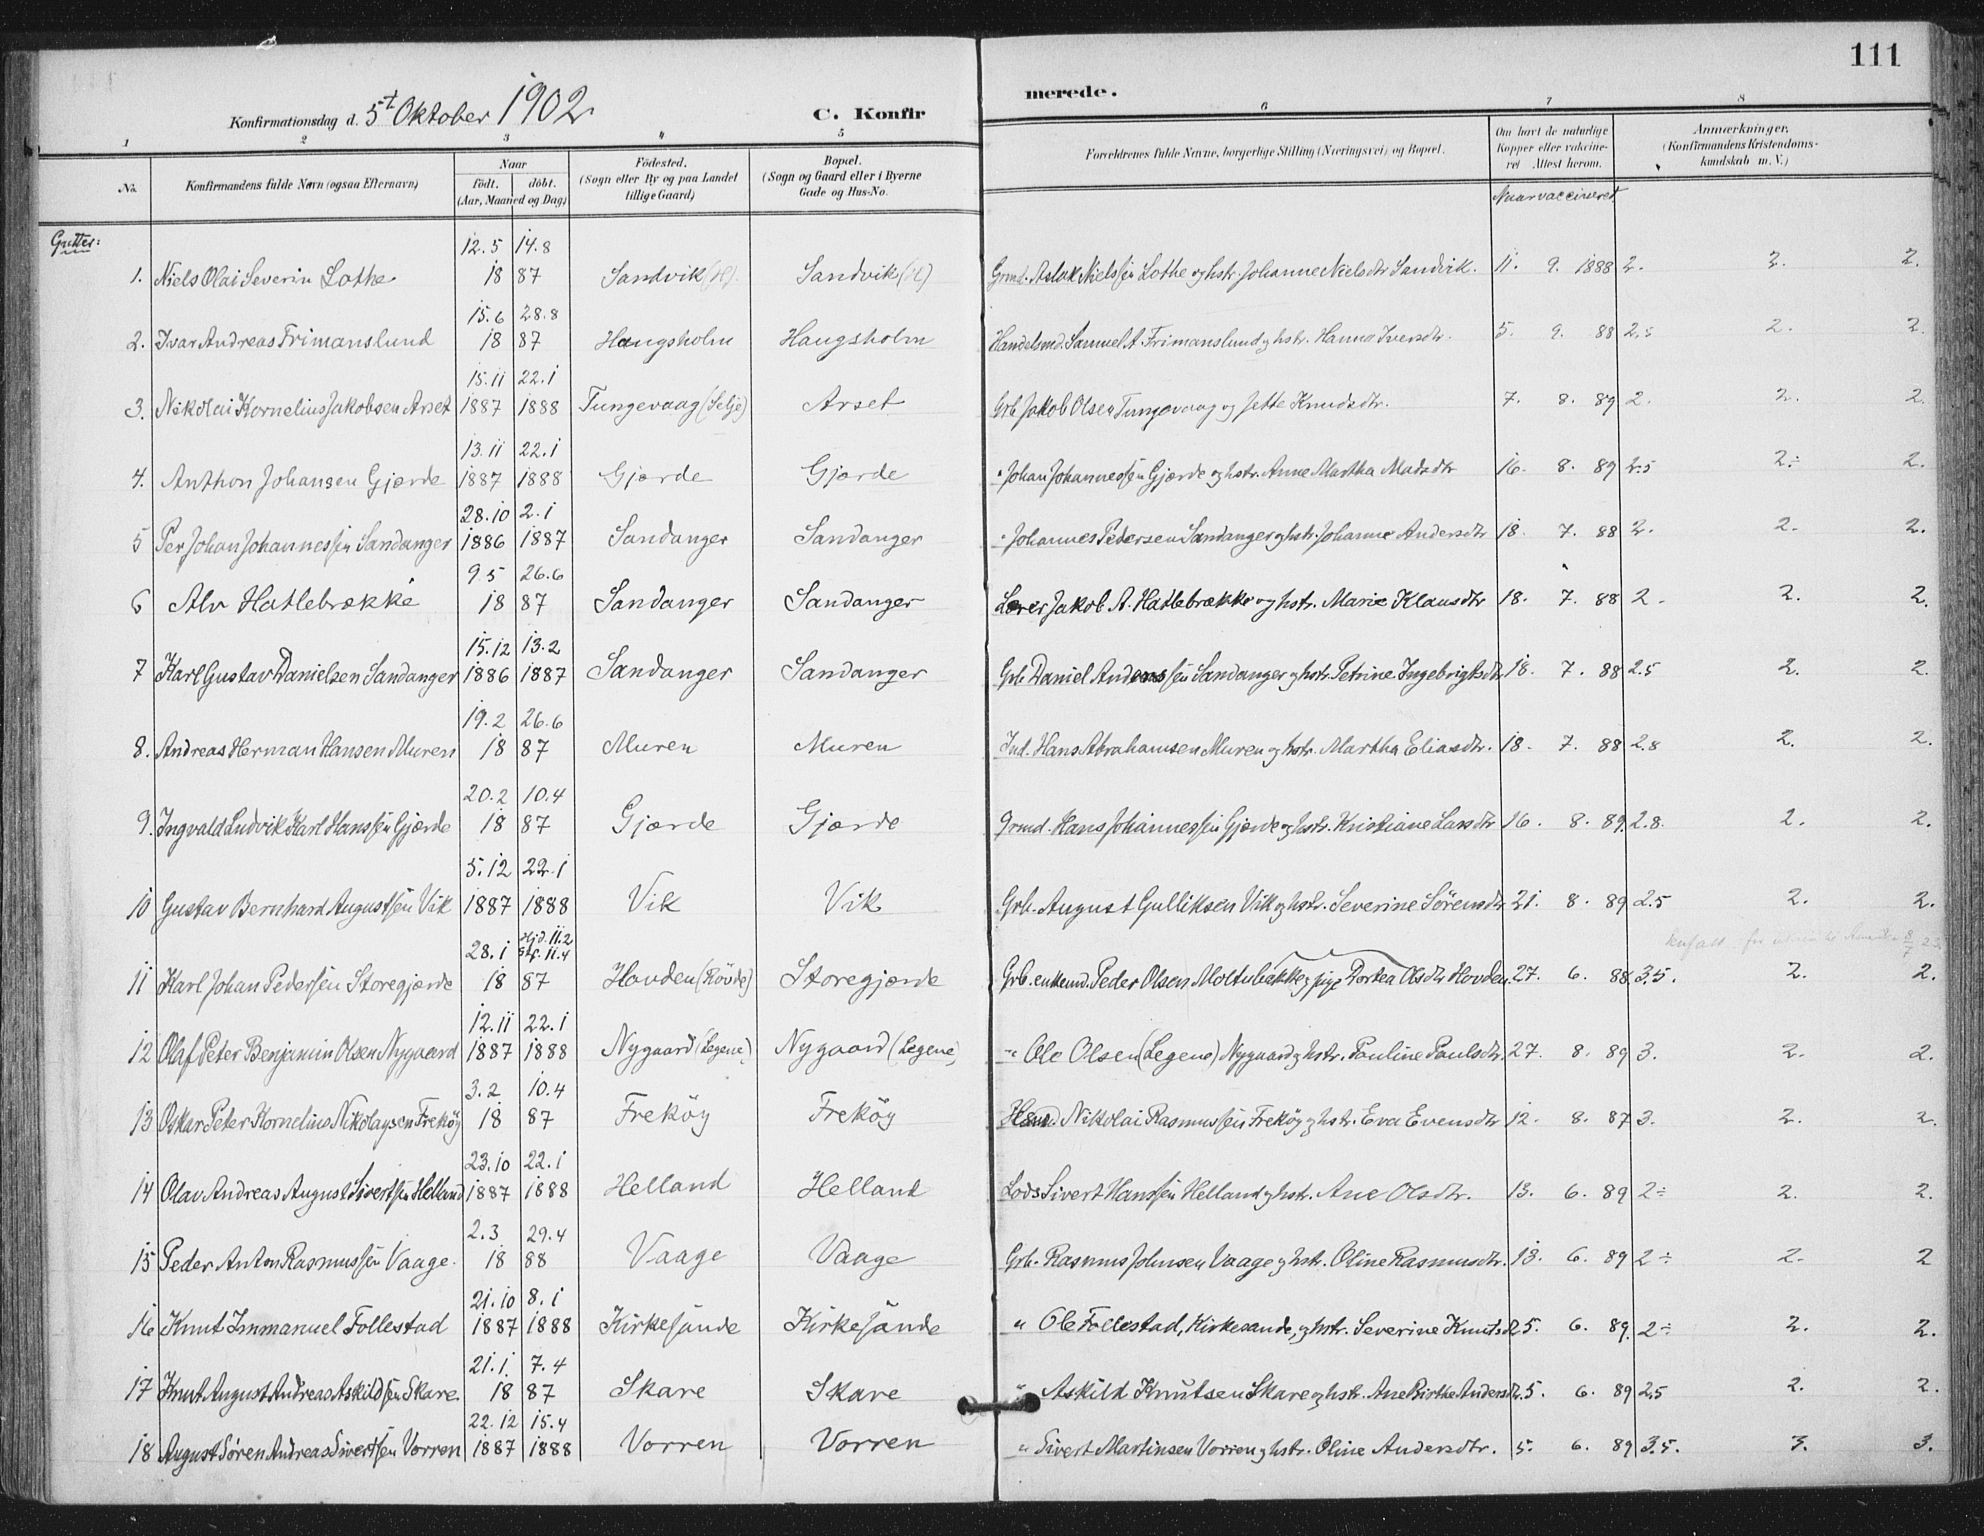 111
Konfirmationsdag d. 5t Oktober 1902 C. Konfirmerede.
1 2 3 4 5 6 7 8
No. Konfirmandens fulde Navn (ogsaa Efternavn) Naar født. døbt. (Aar, Maaned og Dag) Fødested. (Sogn eller By og paa Landet tillige Gaard) Bopæl. (Sogn og Gaard eller i Byerne Gade og Hus-No. Forældrenes fulde Navne, borgerlige Stilling (Næringsvei) og Bopæl. Om havt de naturlige Kopper eller vakcineret. Attest herom. Anmærkninger. (Konfirmandens Kristendomskundskab m. V.)
Naar vaccineret
Gutter:
12.5 14.8
1. Niels Olai Severin Lothe 18 87 Sandvik (H). Sandvik (H) Grmd. Aslak Nielssen Lothe og hstr. Johanne Nielsdtr Sandvik. 11. 9. 1888 2. 2. 2.
15.6 28.8
2. Ivar Andreas Frimanslund 18 87 Haugsholm Haugsholm Handelsmd. Samuel A. Frimanslund og hstr. Hanna Iversdtr. 5. 9. 88 2.5 2. 2.
15.11 22.1
3. Nikolai Kornelius Jakobsen Arset 1887 1888 Tungevaag (Selje) Arset Grb. Jakob Olsen Tungevaag og Jette Knudsdtr. 7. 8. 89 2. 2. 2.
13.11 22.1
4. Anthon Johansen Gjærde 1887 1888 Gjærde Gjærde " Johan Johannessen Gjærde og hstr. Anne Martha Madsdtr 16. 8. 89 2.5 2.÷ 2.
28.10 2.1
5 Per Johan Johannessen Sandanger 1886 1887 Sandanger Sandanger " Johannes Pedersen Sandanger og hstr. Johanne Andersdtr 18. 7. 88 2. 2. 2.
9.5 26.6
6 Alv Hatlebrække 18 87 Sandanger Sandanger Lærer Jakob A. Hatlebrække og hstr. Marie Klausdtr 18. 7. 88 2. 2. 2.
15.12 13.2
7 Karl Gustav Danielsen Sandanger 1886 1887 Sandanger Sandanger Grb. Daniel Anderssen Sandanger og hstr. Petrine Ingebrigtsdtr 18. 7. 88 2.5 2. 2.
19.2 26.6
8. Andreas Herman Hansen Muren 18 87 Muren Muren Ind. Hans Abrahamsen Muren og hstr. Martha Eliasdtr. 18. 7. 88 2.8 2. 2.
20.2 10.4
9. Ingvald Ludvik Karl Hanssen Gjærde 18 87 Gjærde Gjærde Grmd. Hans Johannessen Gjærde og hstr. Kristiane Larsdtr 16. 8. 89. 2.8. 2. 2.
5.12 22.1
10 Gustav Bernhard Augustsen Vik 1887 1888 Vik Vik Grb. August Gulliksen Vik og hstr. Severine Sørensdtr 21. 8. 89 2.5 2. 2.
28.1 Hjd. 11.2 Stf. 11.4
11 Karl Johan Pedersen Storegjærde 18 87 Hovden (Røvde) Storegjærde Grb. enkemd. Peder Olsen Moltubakke og pige Dorthea Olsdtr Hovden. 27. 6. 88. 3.5. 2. 2.
12.11 22.1
12 Olaf Peter Benjamin Olsen Nygaard 1887 1888 Nygaard (Legene) Nygaard (Legene) " Ole Olsen (Legene) Nygaard og hstr. Pauline Paulsdtr. 27. 8. 89 3. 2. 2.
3.2 10.4
13 Oskar Peter Kornelius Nikolaysen Frekøy 18 87 Frekøy Frekøy Nikolai Rasmussen Frekøy og hstr. Eva Evensdtr 12. 8. 87 3. 2. 2.
23.10 22.1
14 Olav Andreas August Sivertsen Helland 1887 1888 Helland Helland Lods Sivert Hanssen Helland og hstr. Ane Olsdtr. 13. 6. 89 2÷ 2. 2.
2.3 29.4
15 Peder Anton Rasmussen Vaage. 18 88 Vaage Vaage Grb. Rasmus Johnsen Vaage og hstr. Oline Rasmusdtr. 13. 6. 89 2÷ 2. 2
21.10 8.1
16 Knut Immanuel Follestad 1887 1888 Kirkesande Kirkesande " Ole Follestad, Kirkesande, og hstr. Severine Knutsd. 25. 6. 89. 2÷ 2. 2.
21.1. 7.4
17 Knut August Andreas Askildsen Skare. 18 87 Skare Skare " Askild Knutsen Skare og hstr. Ane Birthe Andersd. 25. 6. 89 2.5 2. 2.
22.12 15.4
18 August Søren Andreas Sivertsen Vorren 1887 1888 Vorren Vorren " Sivert Martinsen Vorren og hstr. Oline Andersdtr. 5. 6. 89 3.5. 3. 3.